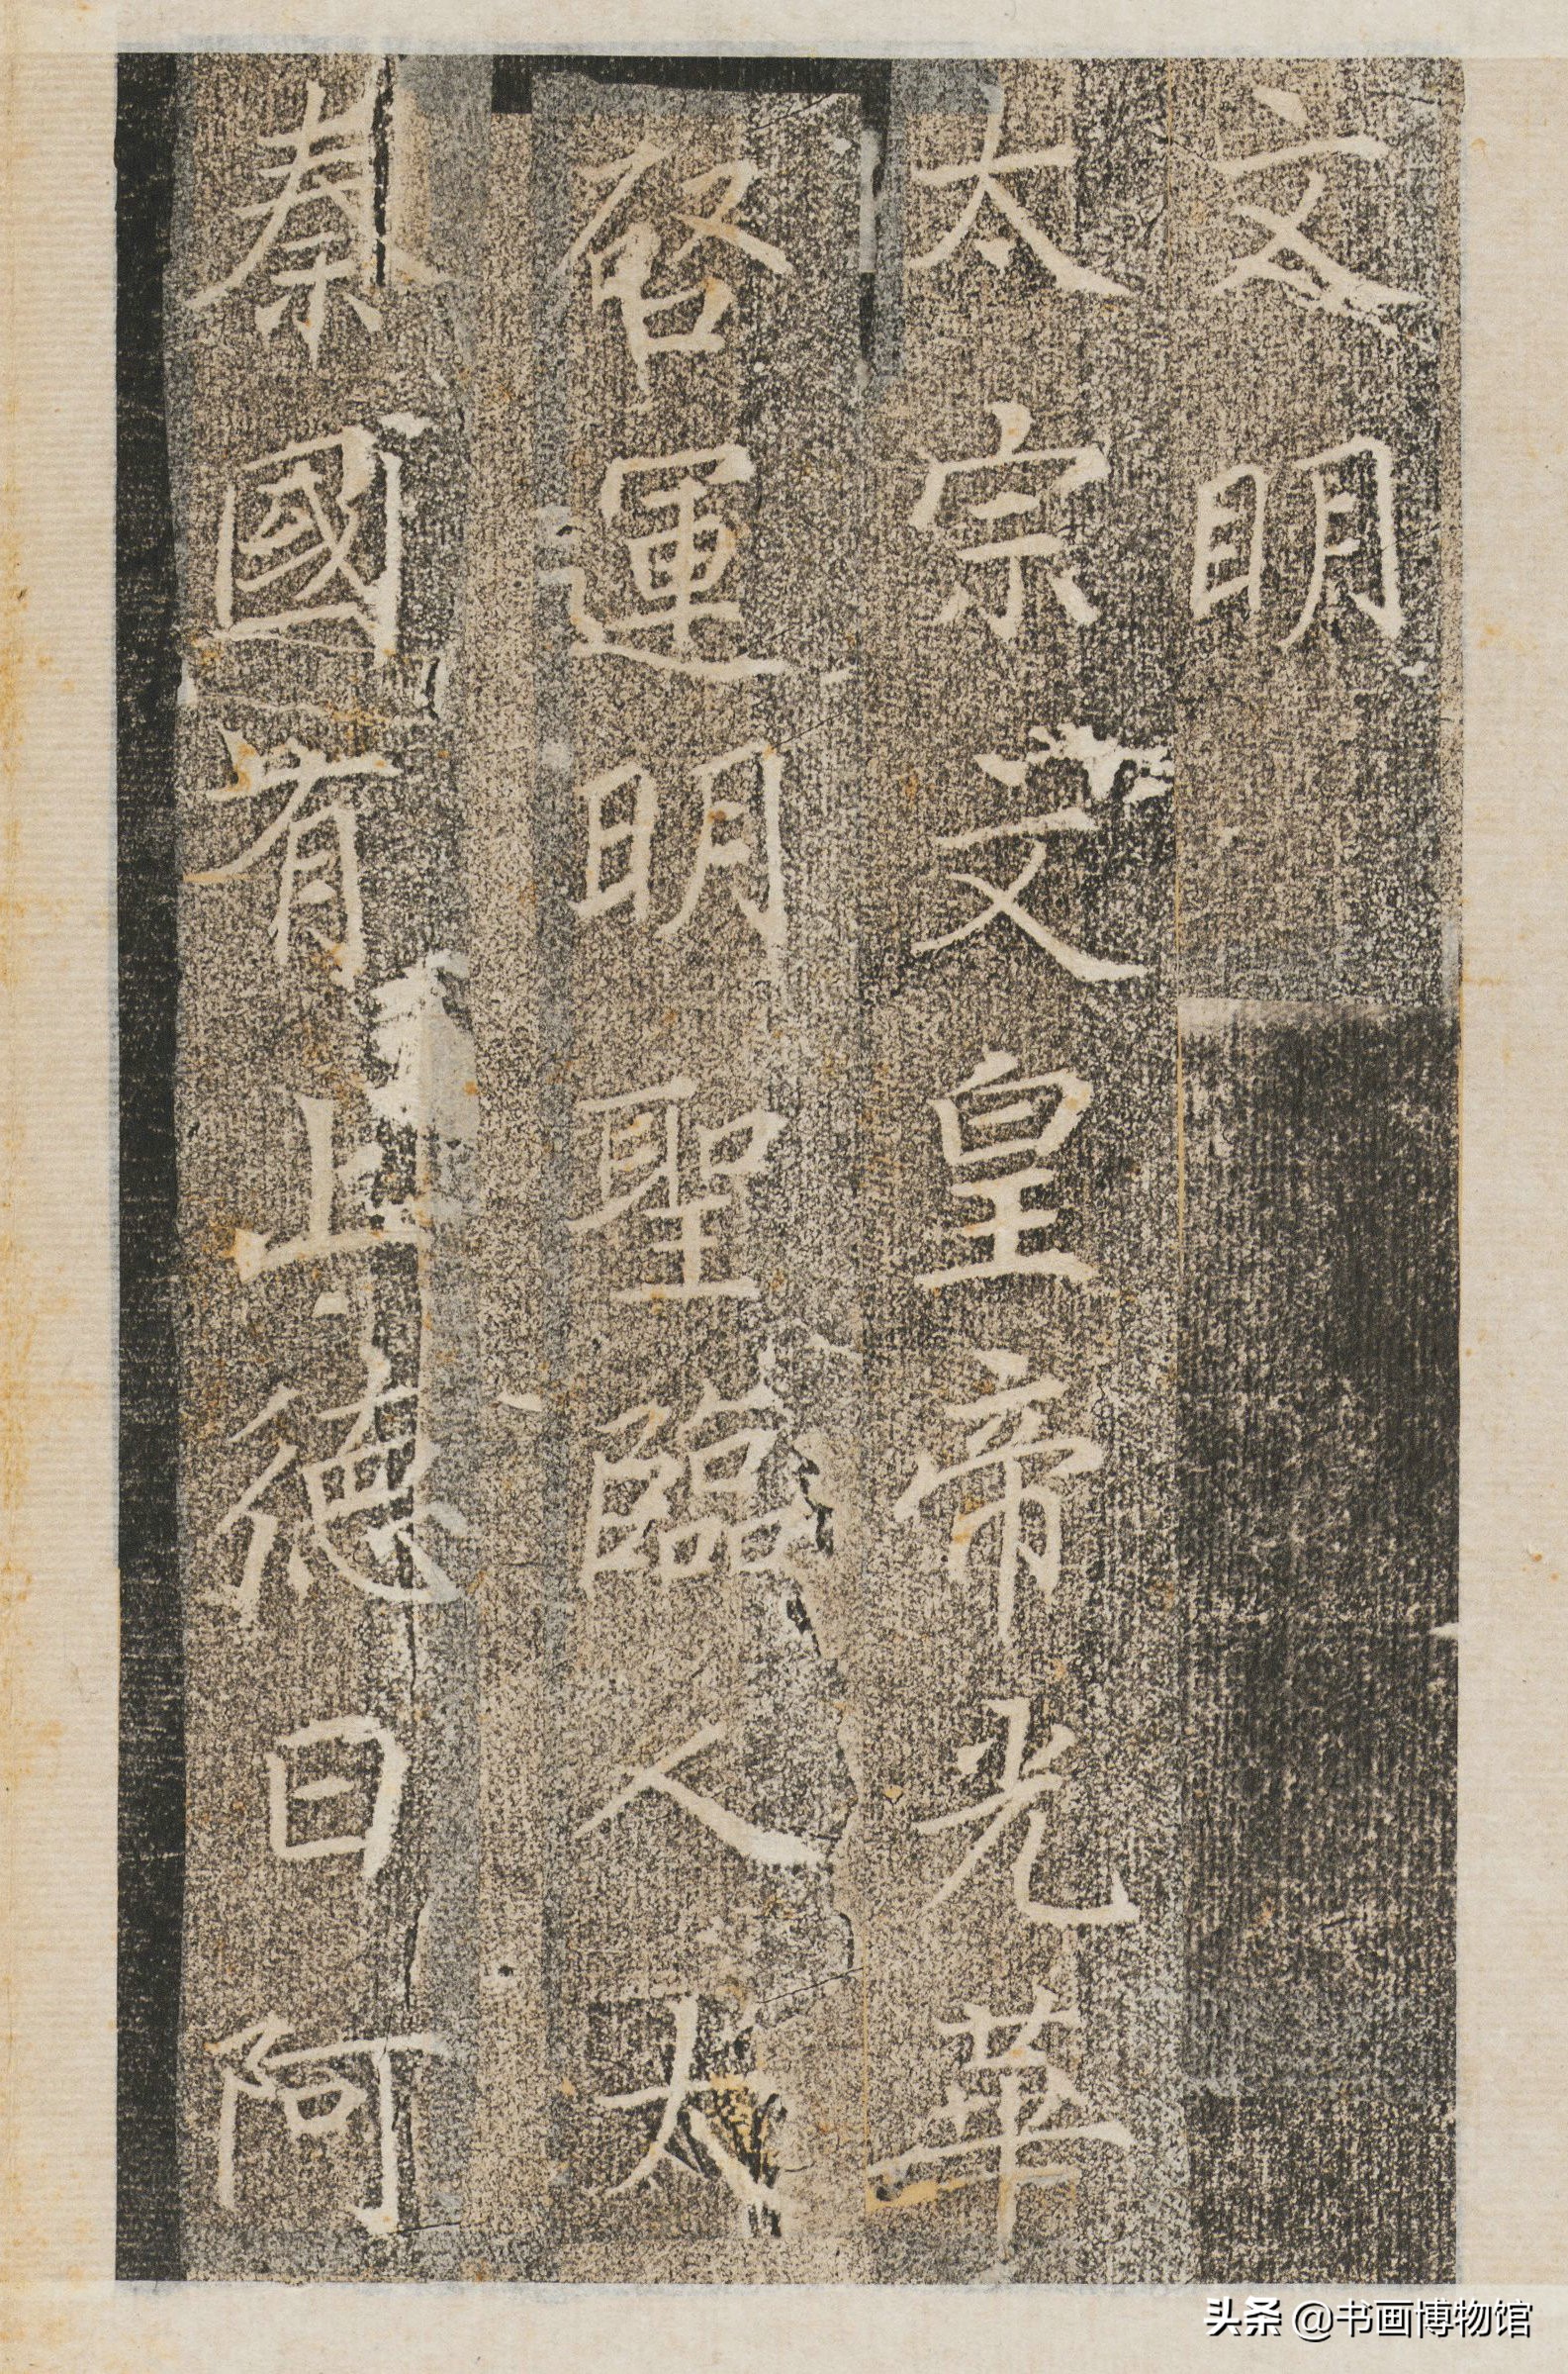 文明
太宗文皇帝光華
啓運明聖臨人大
秦國有上德曰阿
头条 @书画博物馆